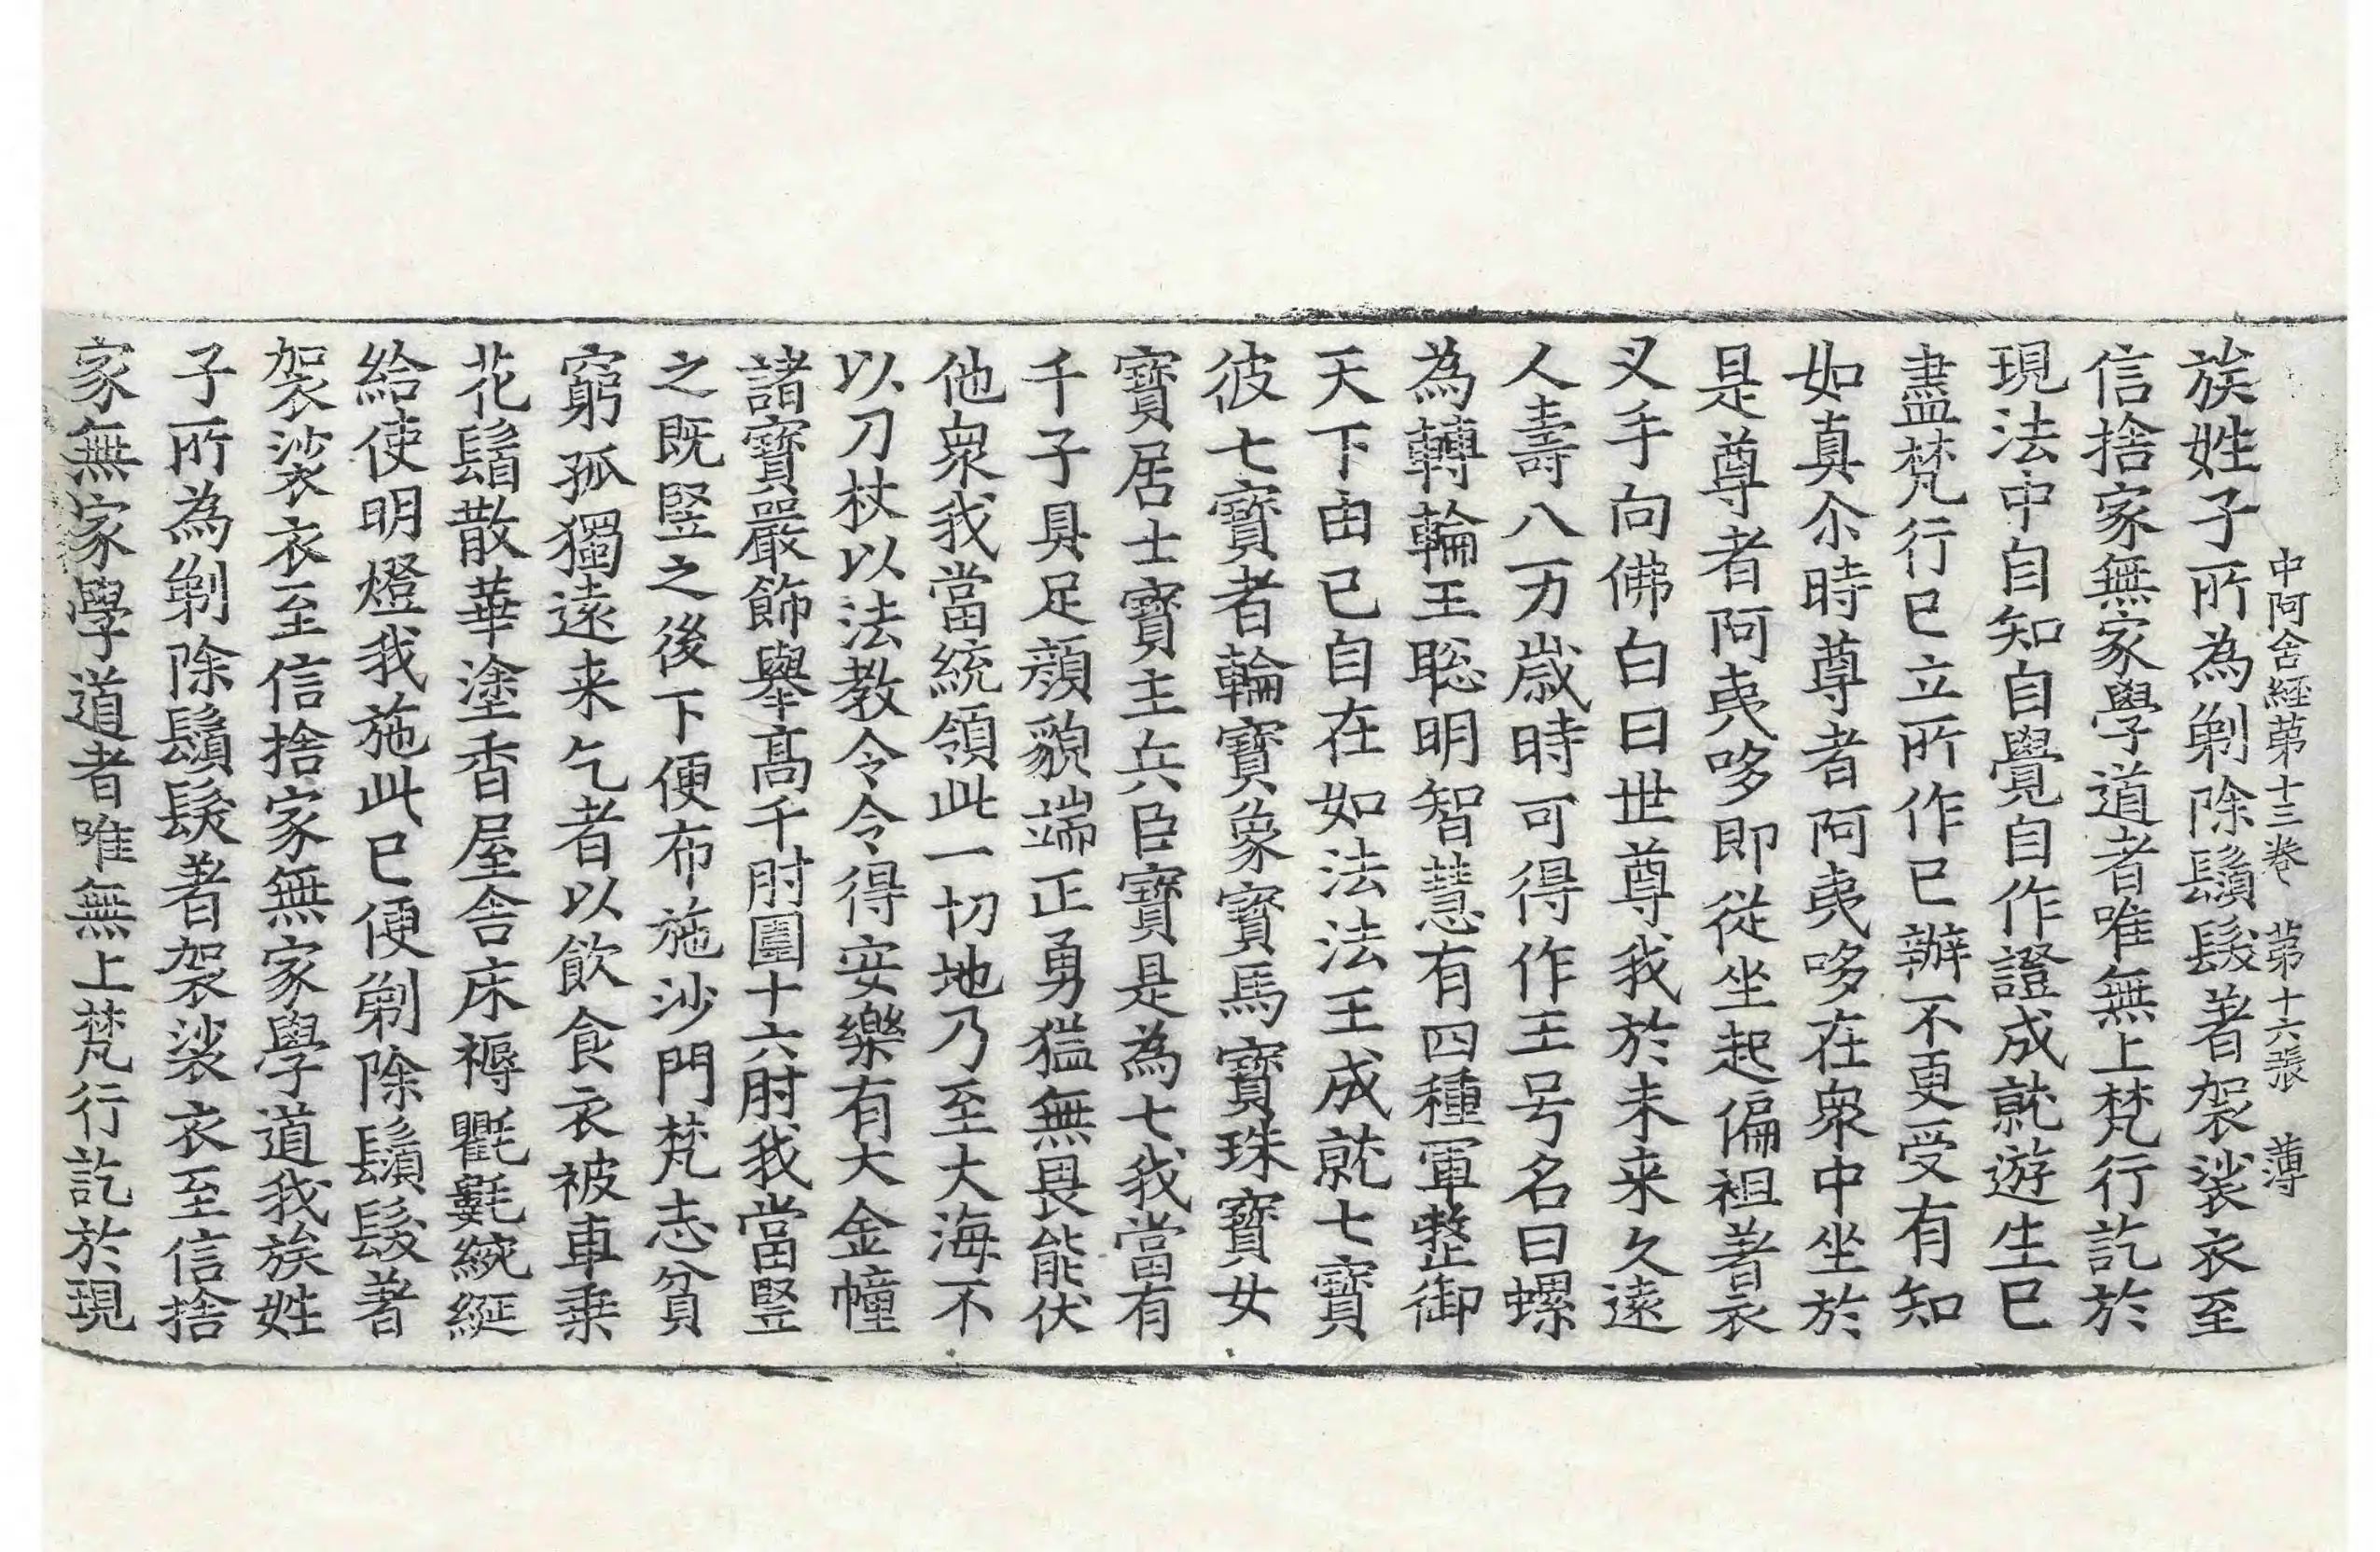 中阿含經第十三卷 第十六張 薄
族姓子所為剃除鬚髮著袈裟衣至
信捨家無家學道者唯無上梵行訖於
現法中自知自覺自作證成就遊生已
盡梵行已立所作已辦不更受有知
如真尒時尊者阿夷哆在衆中坐於
是尊者阿夷哆即從坐起偏袒著衣
叉手向佛白曰世尊我於未来久遠
人壽八万歲時可得作王号名曰螺
為轉輪王聡明智慧有四種軍整御
天下由已自在如法法王成就七寶
彼七寶者輪寶象寶馬寶珠寶女
寶居士寶主兵臣寶是為七我當有
千子具足顔貌端正勇猛無畏能伏
他衆我當統領此一切地乃至大海不
以刀杖以法教令令得安樂有大金幢
諸寶嚴飾舉髙千肘圍十六肘我當豎
之既豎之後下便布施沙門梵志貧
窮孤獨遠来乞者以飲食衣被車乗
花鬘散華塗香屋舍床褥氍毹綩綖
給使明燈我施此已便剃除鬚髮著
袈裟衣至信捨家無家學道我族姓
子所為剃除鬚髮著袈裟衣至信捨
家無家學道者唯無上梵行訖於現